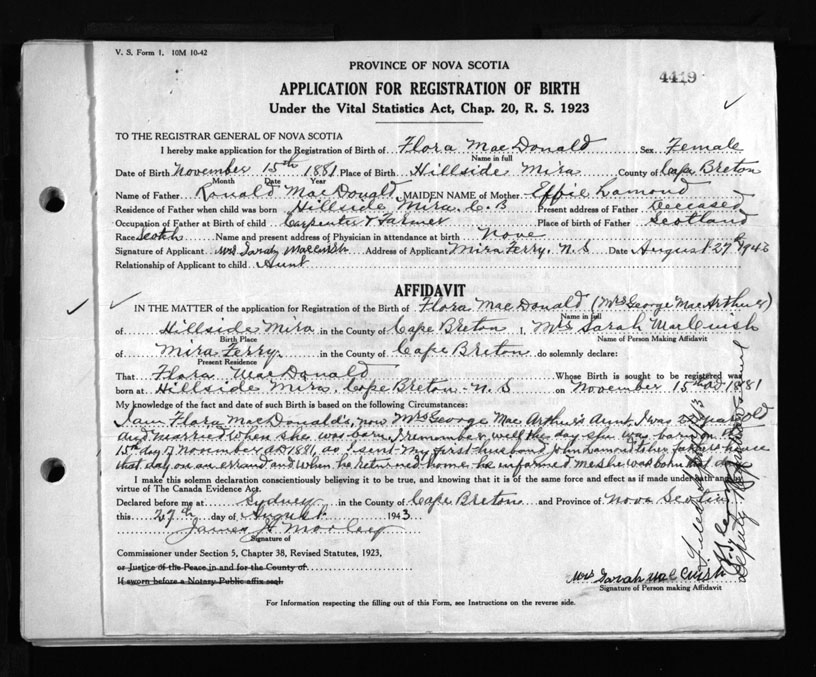 V. S. Form 1. 10M 10-42
PROVINCE OF NOVA SCOTIA
4419
APPLICATION FOR REGISTRATION OF BIRTH
Under the Vital Statistics Act, Chap. 20, R. S. 1923
TO THE REGISTRAR GENERAL OF NOVA SCOTIA
I hereby make application for the Registration of Birth of Flora MacDonald Sex Female
Name in full
Date of Birth November 15th 1881 Place of Birth Hillside Mira County of Cape Breton
Month Date Year
Name of Father Ronald MacDonald MAIDEN NAME of Mother Effie Lamond
Residence of Father when child was born Hillside Mira. C B Present address of Father Deceased
Occupation of Father at Birth of child Carpenter & Farmer Place of birth of Father Scotland
Race Scotch Name and present address of Physician in attendance at birth None
Signature of Applicant Mrs Sarah MacCuish Address of Applicant Mira Ferry. N. S Date August 27th
Relationship of Applicant to child Aunt
AFFIDAVIT
IN THE MATTER of the application for Registration of the Birth of Flora MacDonald (Mrs George MacArthur)
Name in full
of Hillside Mira in the County of Cape Breton I, Mrs Sarah MacCuish
Birth Place Name of Person Making Affidavit
of Mira Ferry. in the County of Cape Breton do solemnly declare:
Present Residence
That Flora MacDonald Whose Birth is sought to be registered was
born at Hillside Mira. Cape Breton. N. S on November 15th AD 1881
My knowledge of the fact and date of such Birth is based on the following Circumstances:
I am Flora MacDonald's, now Mrs George Mac Arthur's Aunt, I was years old
and married when she was born, I remember well the day she was born on the
15th day of November AD 1881, as I sent my first husband John Lamond to her father's house
that day on an errand and when he returned home he informed me she was born that day
I make this solemn declaration conscientiously believing it to be true, and knowing that it is of the same force and effect as if made under oath and by
virtue of The Canada Evidence Act.
Declared before me at Sydney in the County of Cape Breton and Province of Nova Scotia
this 27th day of August 1943
James H Morley
Signature of
Commissioner under Section 5, Chapter 38, Revised Statutes, 1923,
or Justice of the Peace in and for the County of
If sworn before a Notary Public affix seal.
Mrs Sarah MacCuish
Signature of Person making Affidavit
For Information respecting the filling out of this Form, see Instructions on the reverse side.
Deputy